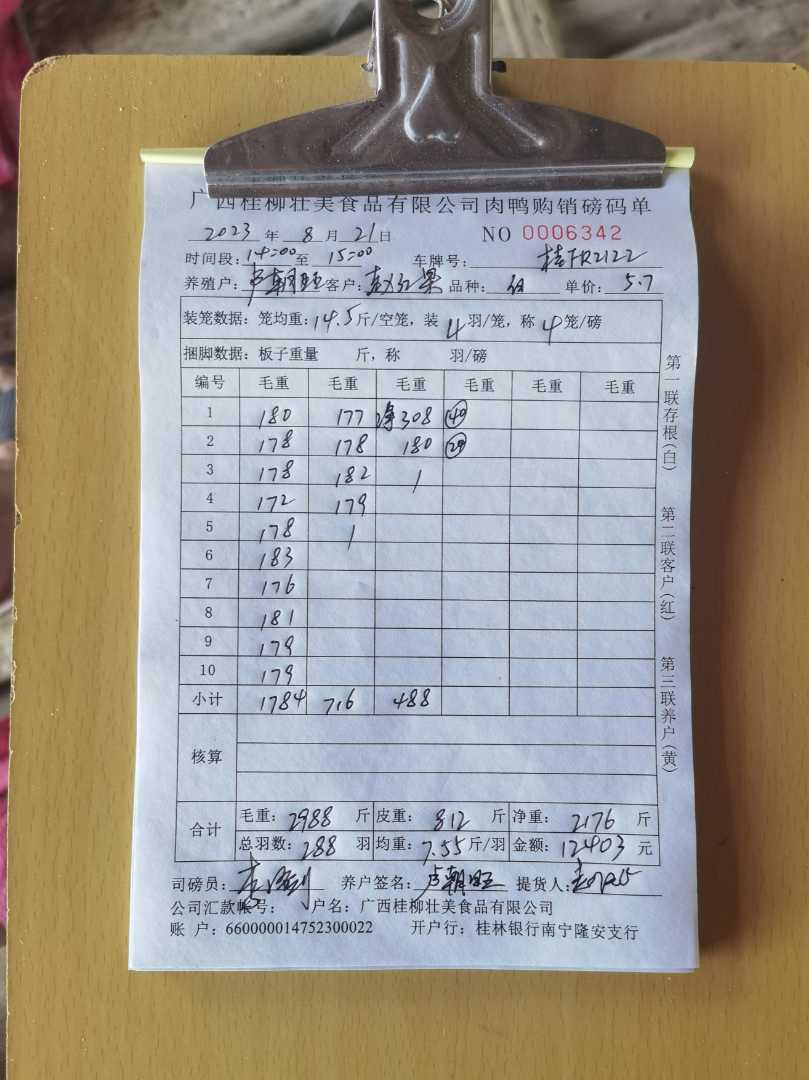 广西桂柳壮美食品有限公司肉鸭购销磅码单
2023 年 8 月 21 日 NO 0006342
时间段: 14:00 至 15:00 车牌号: 桂FR2122
养殖户: 卢朝旺 客户: 品种: 单价: 5.7
装笼数据: 笼均重: 14.5 斤/空笼, 装 4 羽/笼, 称 4 笼/磅
捆脚数据: 板子重量 斤, 称 羽/磅
编号 毛重 毛重 毛重 毛重 毛重 毛重
1 180 177 净308 40
2 178 178 180
3 178 182 1
4 172 179
5 178 1
6 183
7 176
8 181
9 179
10 179
小计 1784 716 488
核算
合计 毛重: 2988 斤 皮重: 812 斤 净重: 2176 斤
总羽数: 288 羽 均重: 7.55 斤/羽 金额: 12403 元
司磅员: 养户签名: 卢朝旺 提货人:
公司汇款帐号: 户名: 广西桂柳壮美食品有限公司
账 户: 660000014752300022 开户行: 桂林银行南宁隆安支行
第一联存根(白)
第二联客户(红)
第三联养户(黄)